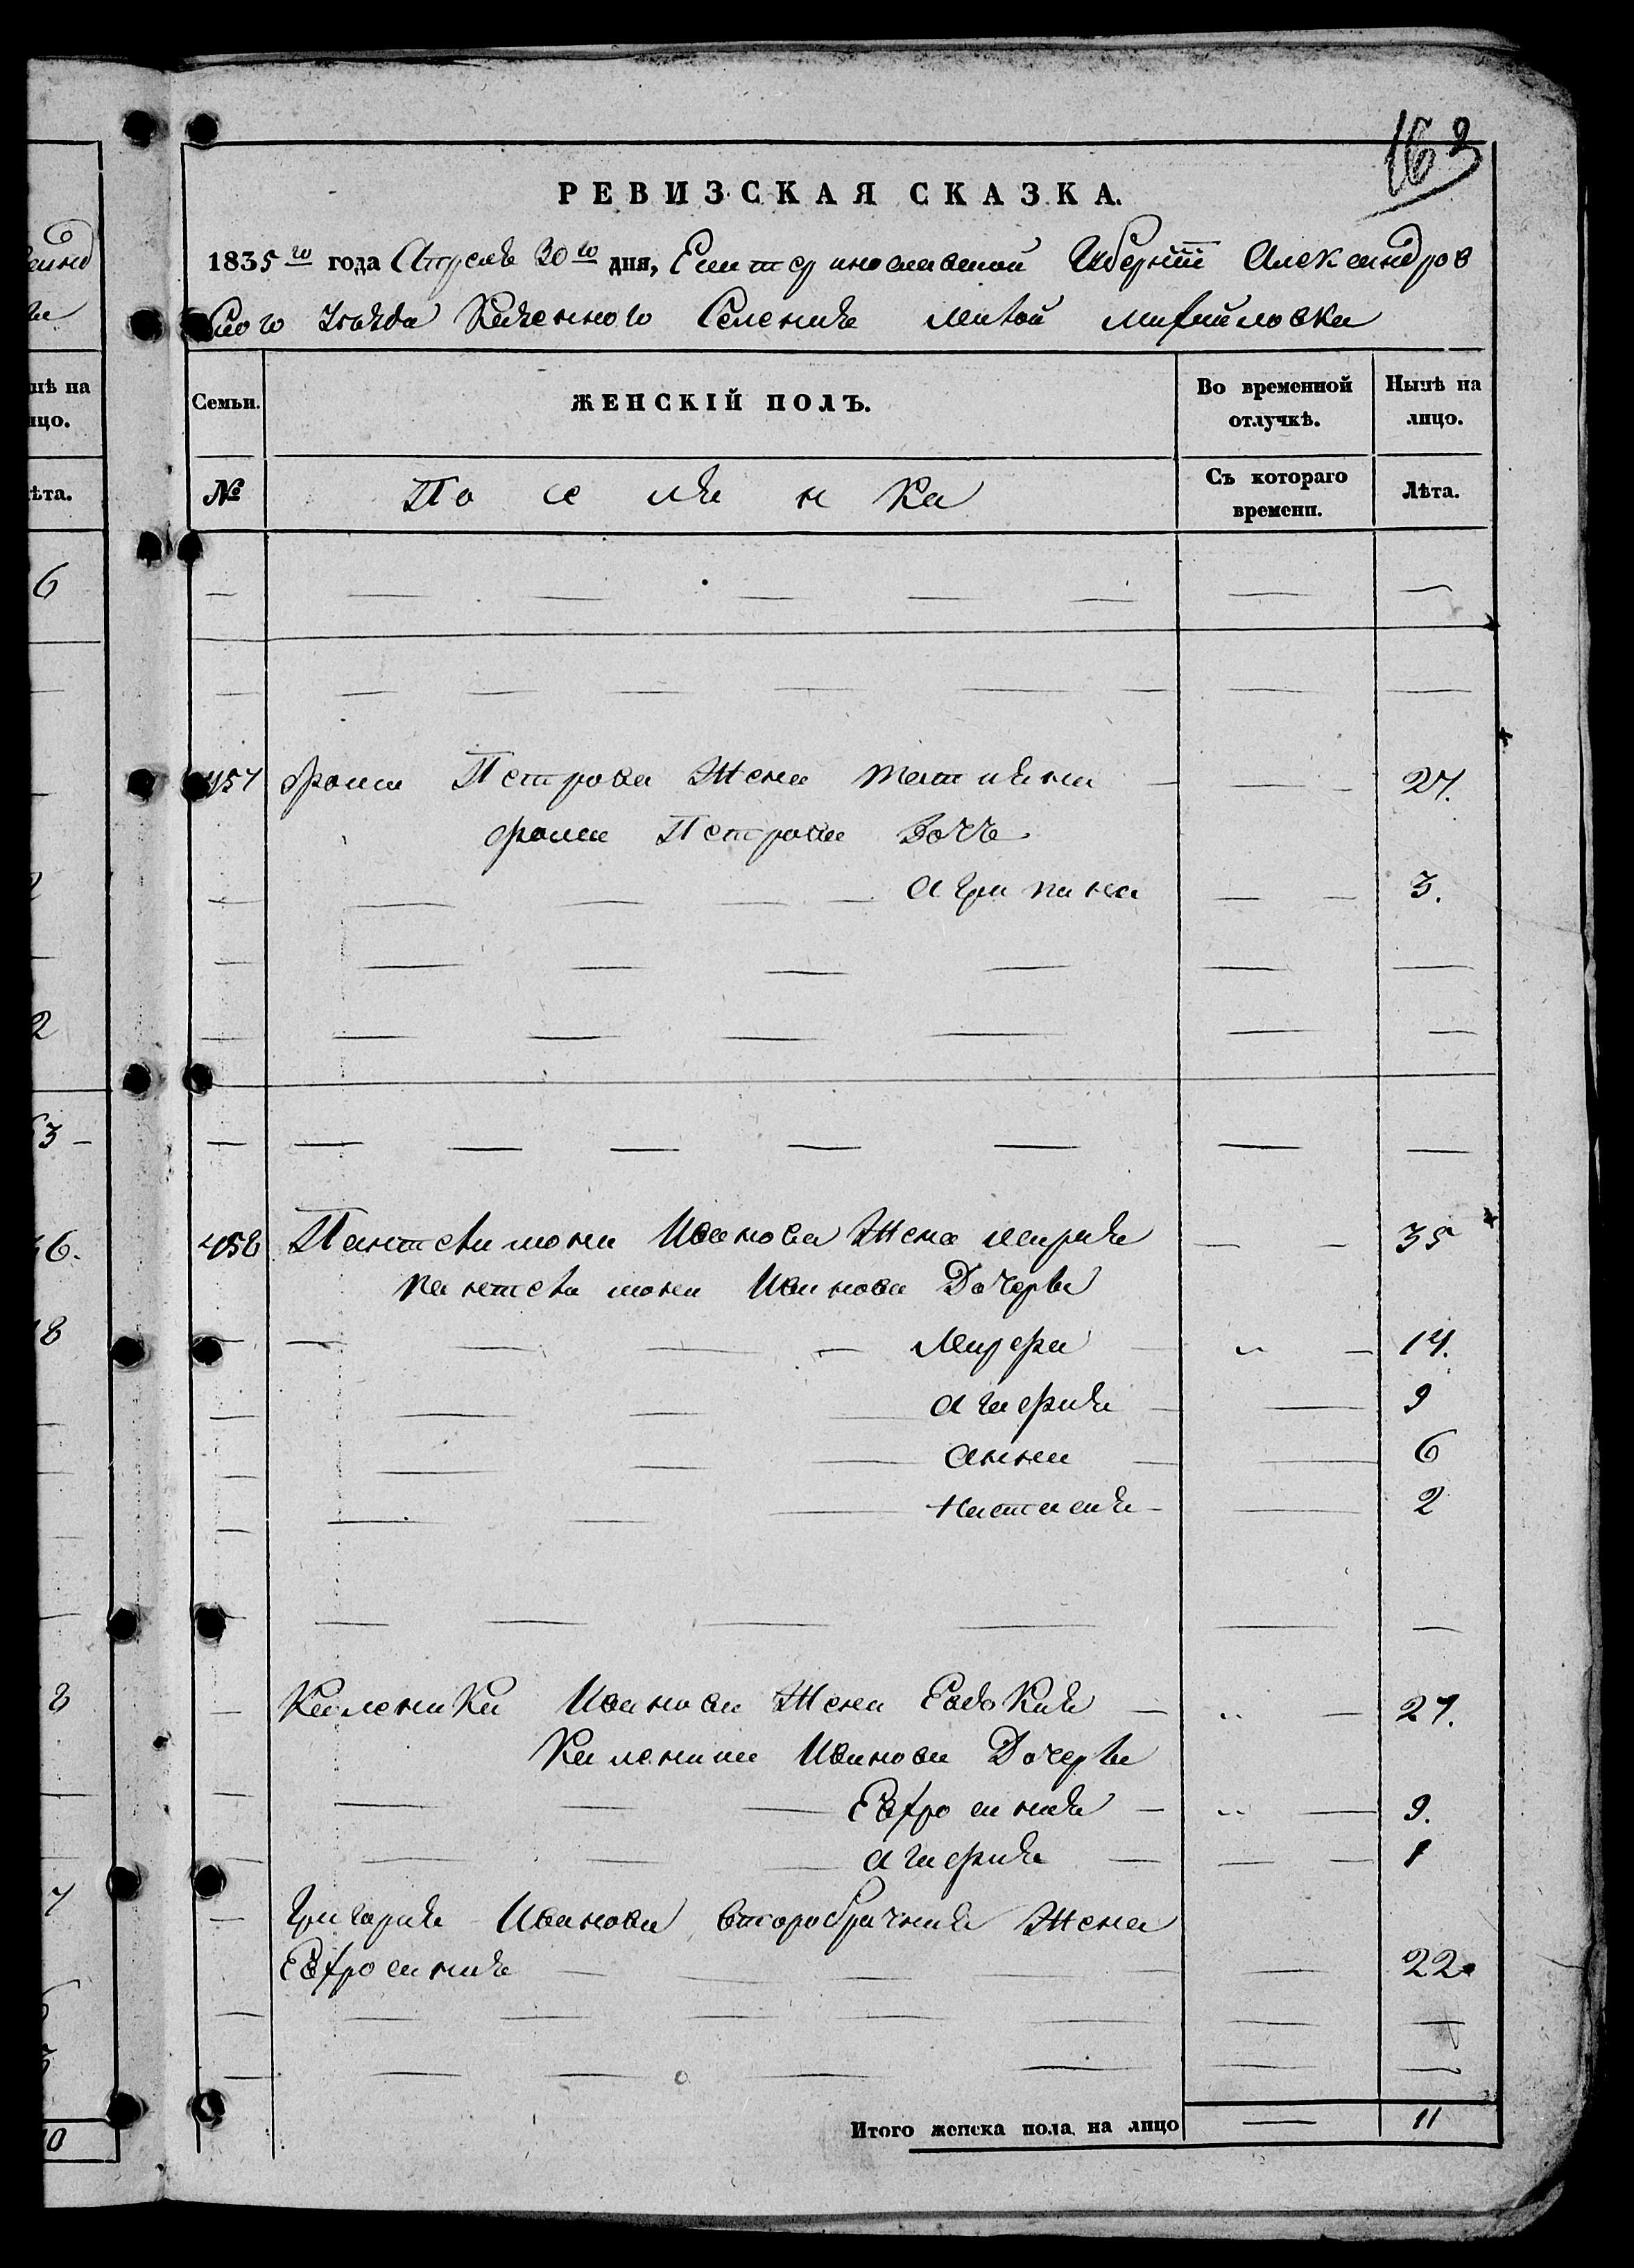 163
РЕВИЗСКАЯ СКАЗКА.
1835 го года Апреля 30 го дня, Екатеринославской Губернiи Александров
ского Уезда Казенного Селения малой михайловки
Семьи.
ЖЕНСКІЙ ПОЛЪ.
Во временной отлучкѣ.
Нынѣ на лицо.
№
Поселянка
Съ котораго времени.
Лѣта.
457 фомы Петрова Жена татияна 27.
фомы Петрова Дочь
агрипина 3.
458 Пантелимона Иванова Жена мария 35
пантелимона Иванова Дочери
14.
агафия 9
анна 6
настасия 2
Каленика Иванова Жена Евдокия 27.
Каленика Иванова Дочери
Евфросиния 9.
агафия 1
григория Иванова второбрачная Жена
Евфросиния 22.
Итого женска пола на лицо 11